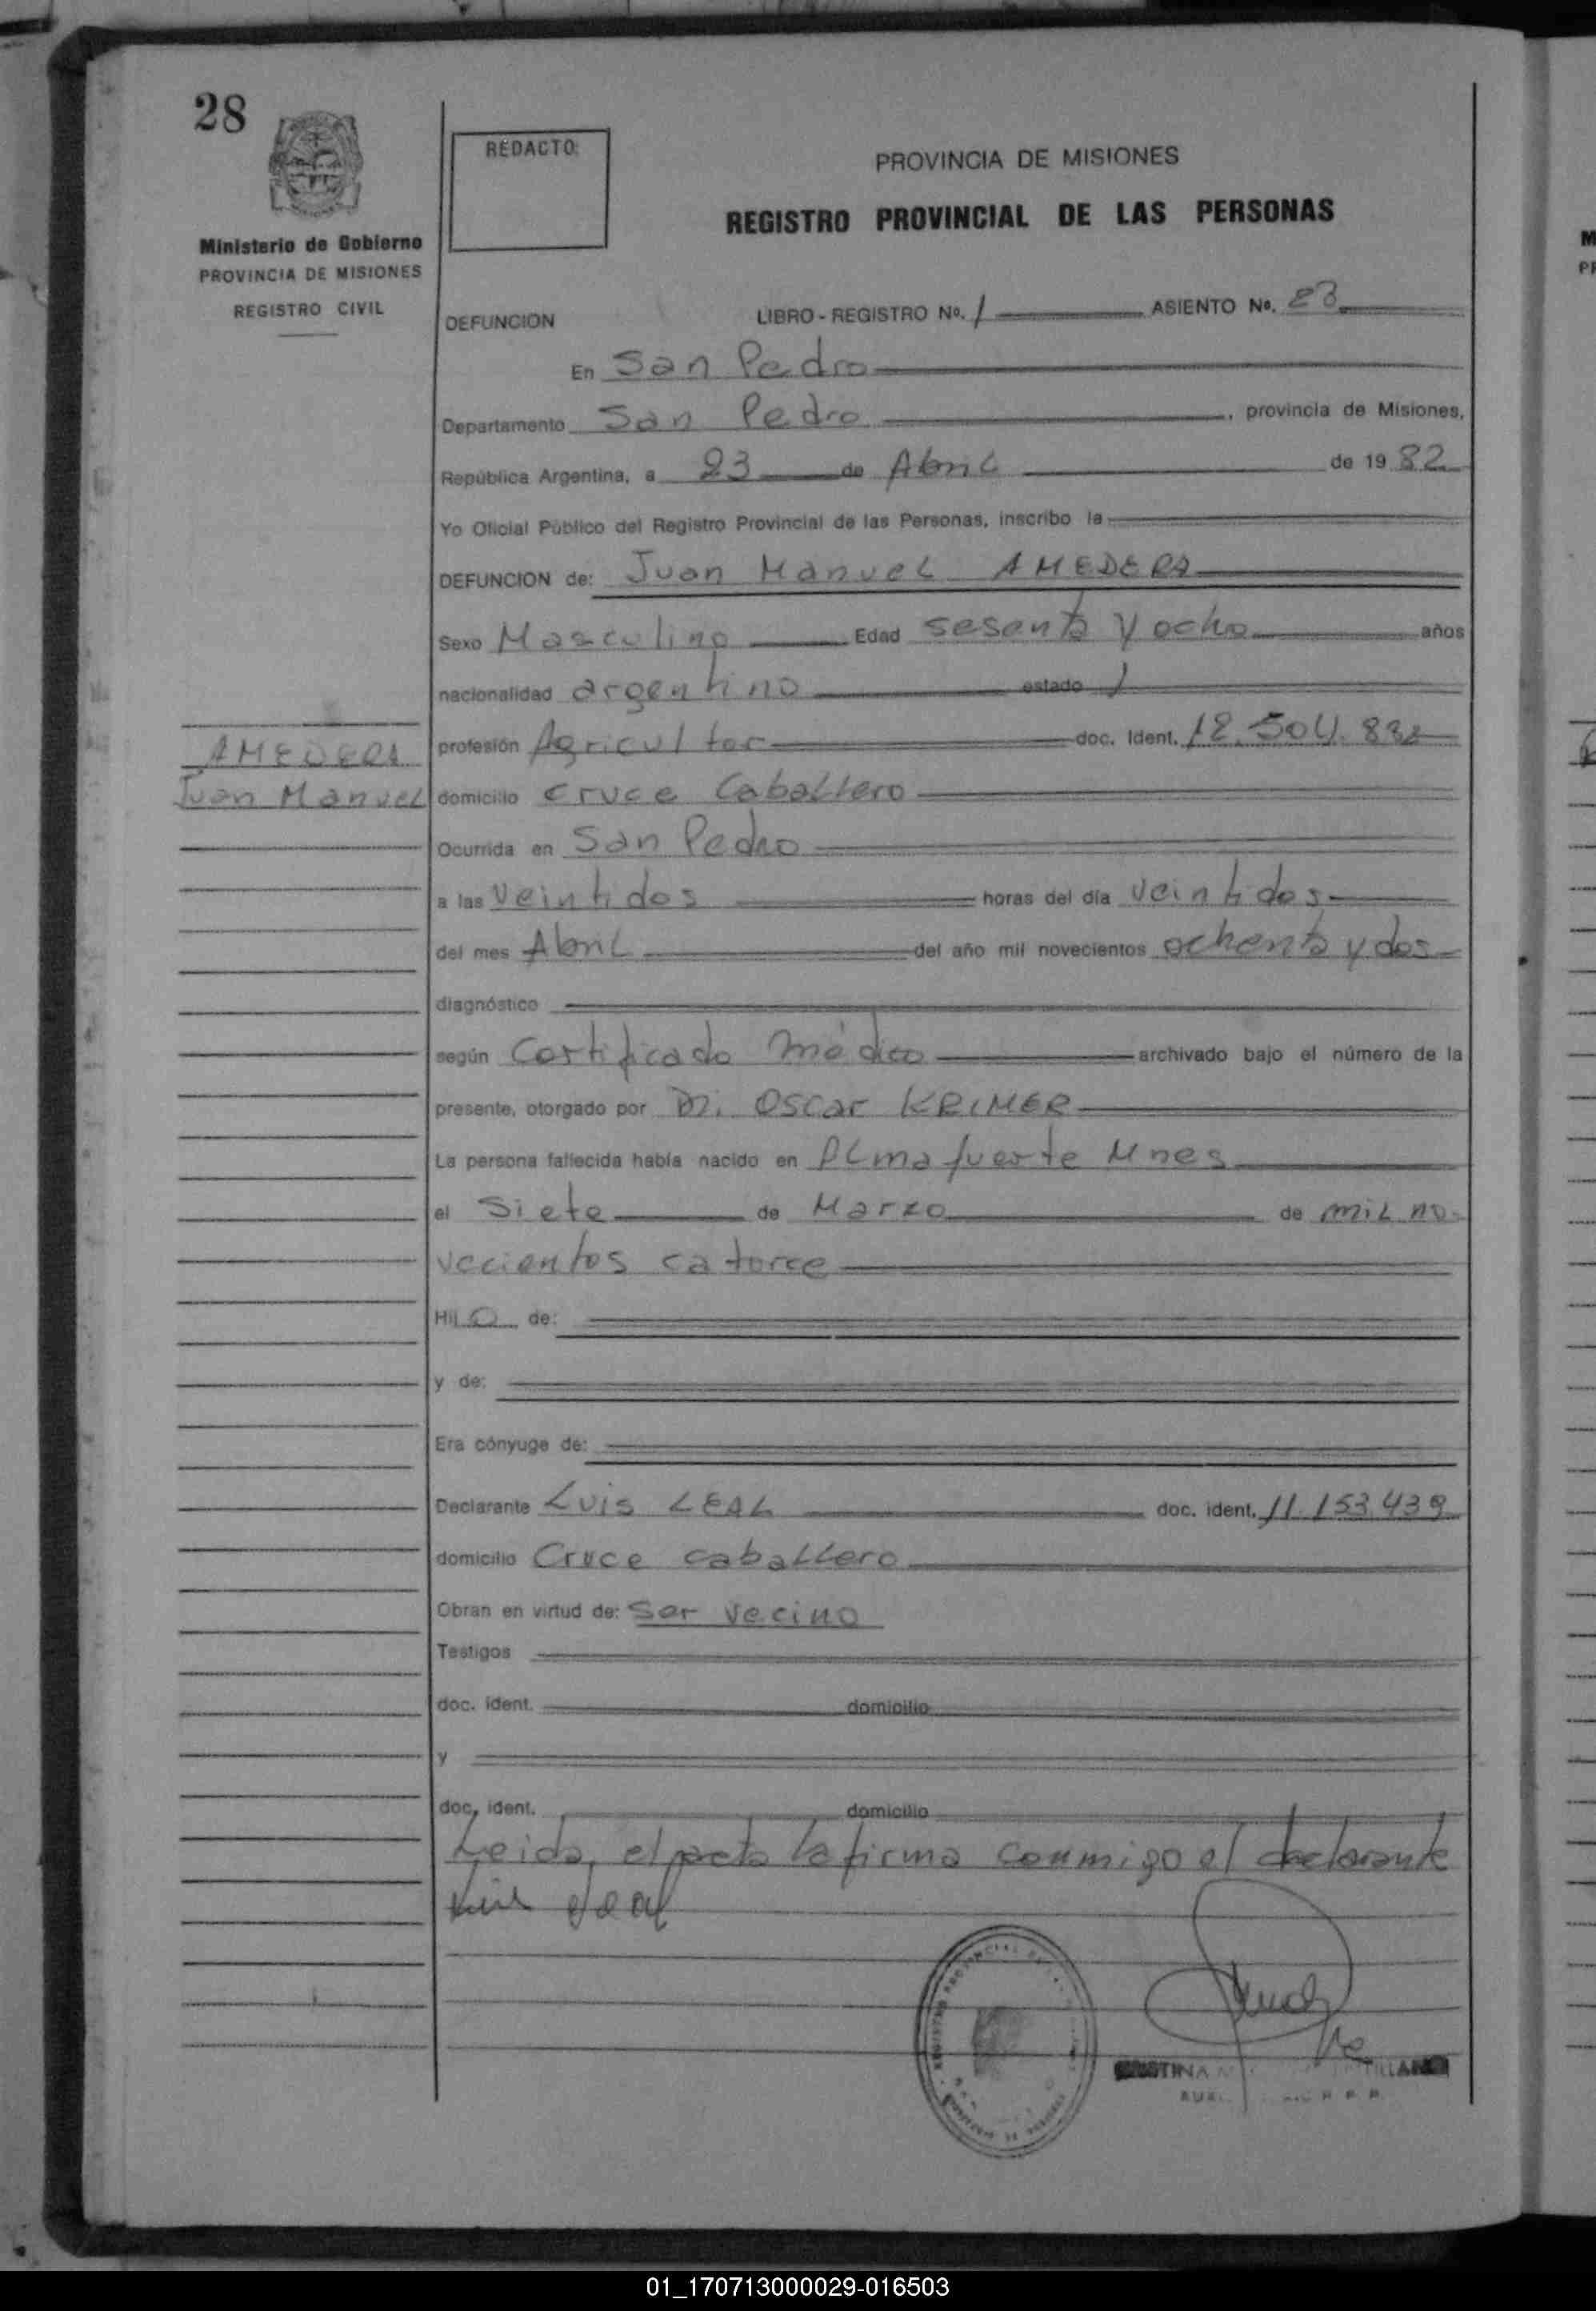 28
REDACTO:
PROVINCIA DE MISIONES
REGISTRO PROVINCIAL DE LAS PERSONAS
Ministerio de Gobierno
PROVINCIA DE MISIONES
REGISTRO CIVIL
DEFUNCION LIBRO - REGISTRO Nº. 1 ASIENTO Nº. 23
En San Pedro
Departamento San Pedro, provincia de Misiones,
República Argentina, a 23 de Abril de 1982
Yo Oficial Público del Registro Provincial de las Personas, inscribo la
DEFUNCION de: Juan Manuel AMEDERA
Sexo Masculino Edad sesenta y ocho años
nacionalidad argentino estado
AMEDERA
Juan Manuel
profesión Agricultor doc. Ident. 12.504.832
domicilio cruce Caballero
Ocurrida en San Pedro
a las veintidos horas del día veintidos
del mes Abril del año mil novecientos ochenta y dos
diagnóstico
según Certificado médico archivado bajo el número de la
presente, otorgado por Dr. Oscar KRIMER
La persona fallecida había nacido en ALmafuerte Mnes
el Siete de Marzo de mil no-
vecientos catorce
Hijo de:
y de:
Era cónyuge de:
Declarante Luis LEAL doc. ident. 11.153.439
domicilio Cruce caballero
Obran en virtud de: Ser vecino
Testigos
doc. ident. domicilio
y
doc. ident. domicilio
Leida, el acta la firma conmigo el declarante
Luis Leal
01_170713000029-016503